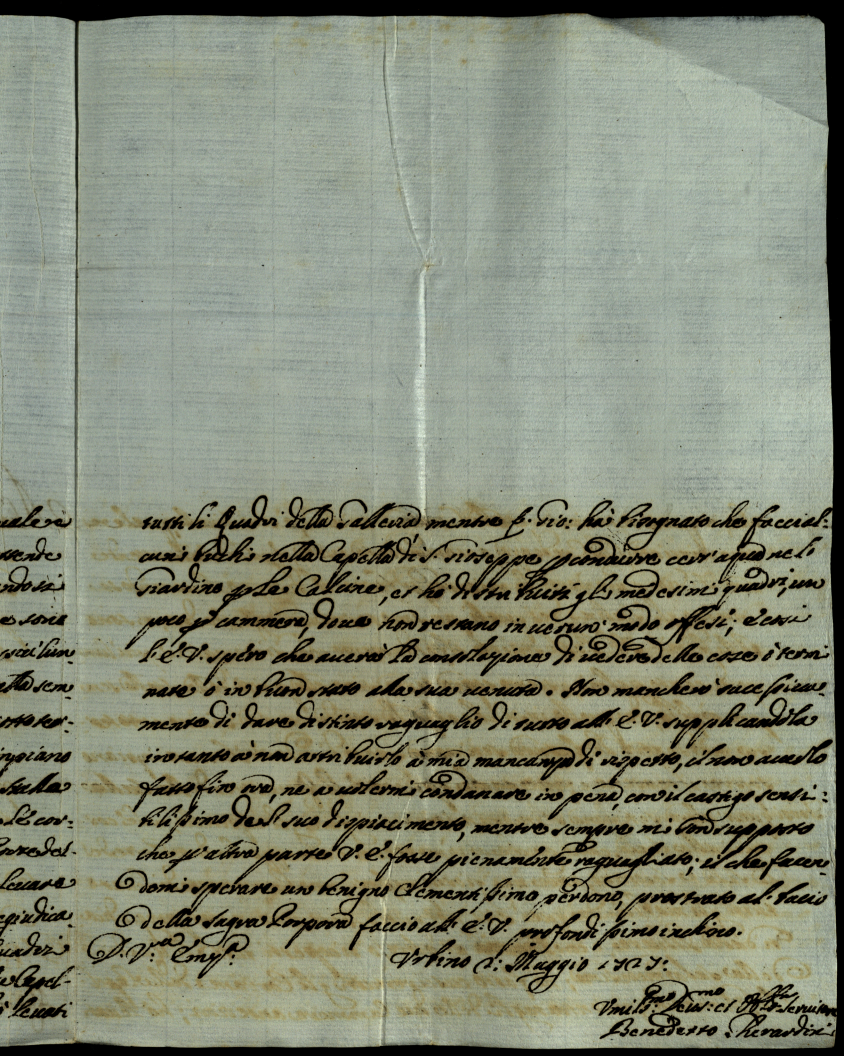 tutti li Quadri della Galleria mentre p. Gio: hà bisognato che faccial:
cuni buchi nella Capella di S. Gioseppe p condurre cert'aqua nel
Giardino p le Calcine, et hò distribuiti gli medesimi quadri, un
poco p cammera, doue non restano in ueruno modo offesi; e così
l'E. V. spero che auerà la consolazione di uedere delle cose ò termi
nate ò in buon stato alla sua uenuta. Non mancherò sucessiua-
mente di dare distinto raguaglio di tutto all' E. V. supplicandola
intanto à non attribuirlo à mia mancanza di rispetto, il non auerlo
fatto fin ora, ne a uolermi condanare in pena con il castigo sensi:
bilissimo del suo dispiacimento, mentre sempre mi son supposto
che p altra parte V. E. fosse pienamente raguagliato; il che facen
domi sperare un benigno Clementissimo perdono, prostrato al bacio
della sagra Porpora faccio all' E. V. profondissimo inchino.
D. V.ra Emza
Urbino 2: Maggio 1727:
Umil.mo Deuo.mo et Obb.mo Seruitore
Benedetto
uale è
ndosi
e sono
alla sem
piano
stalla
Le cor-
leuare
egiudica
uadri
Capel-
leuati